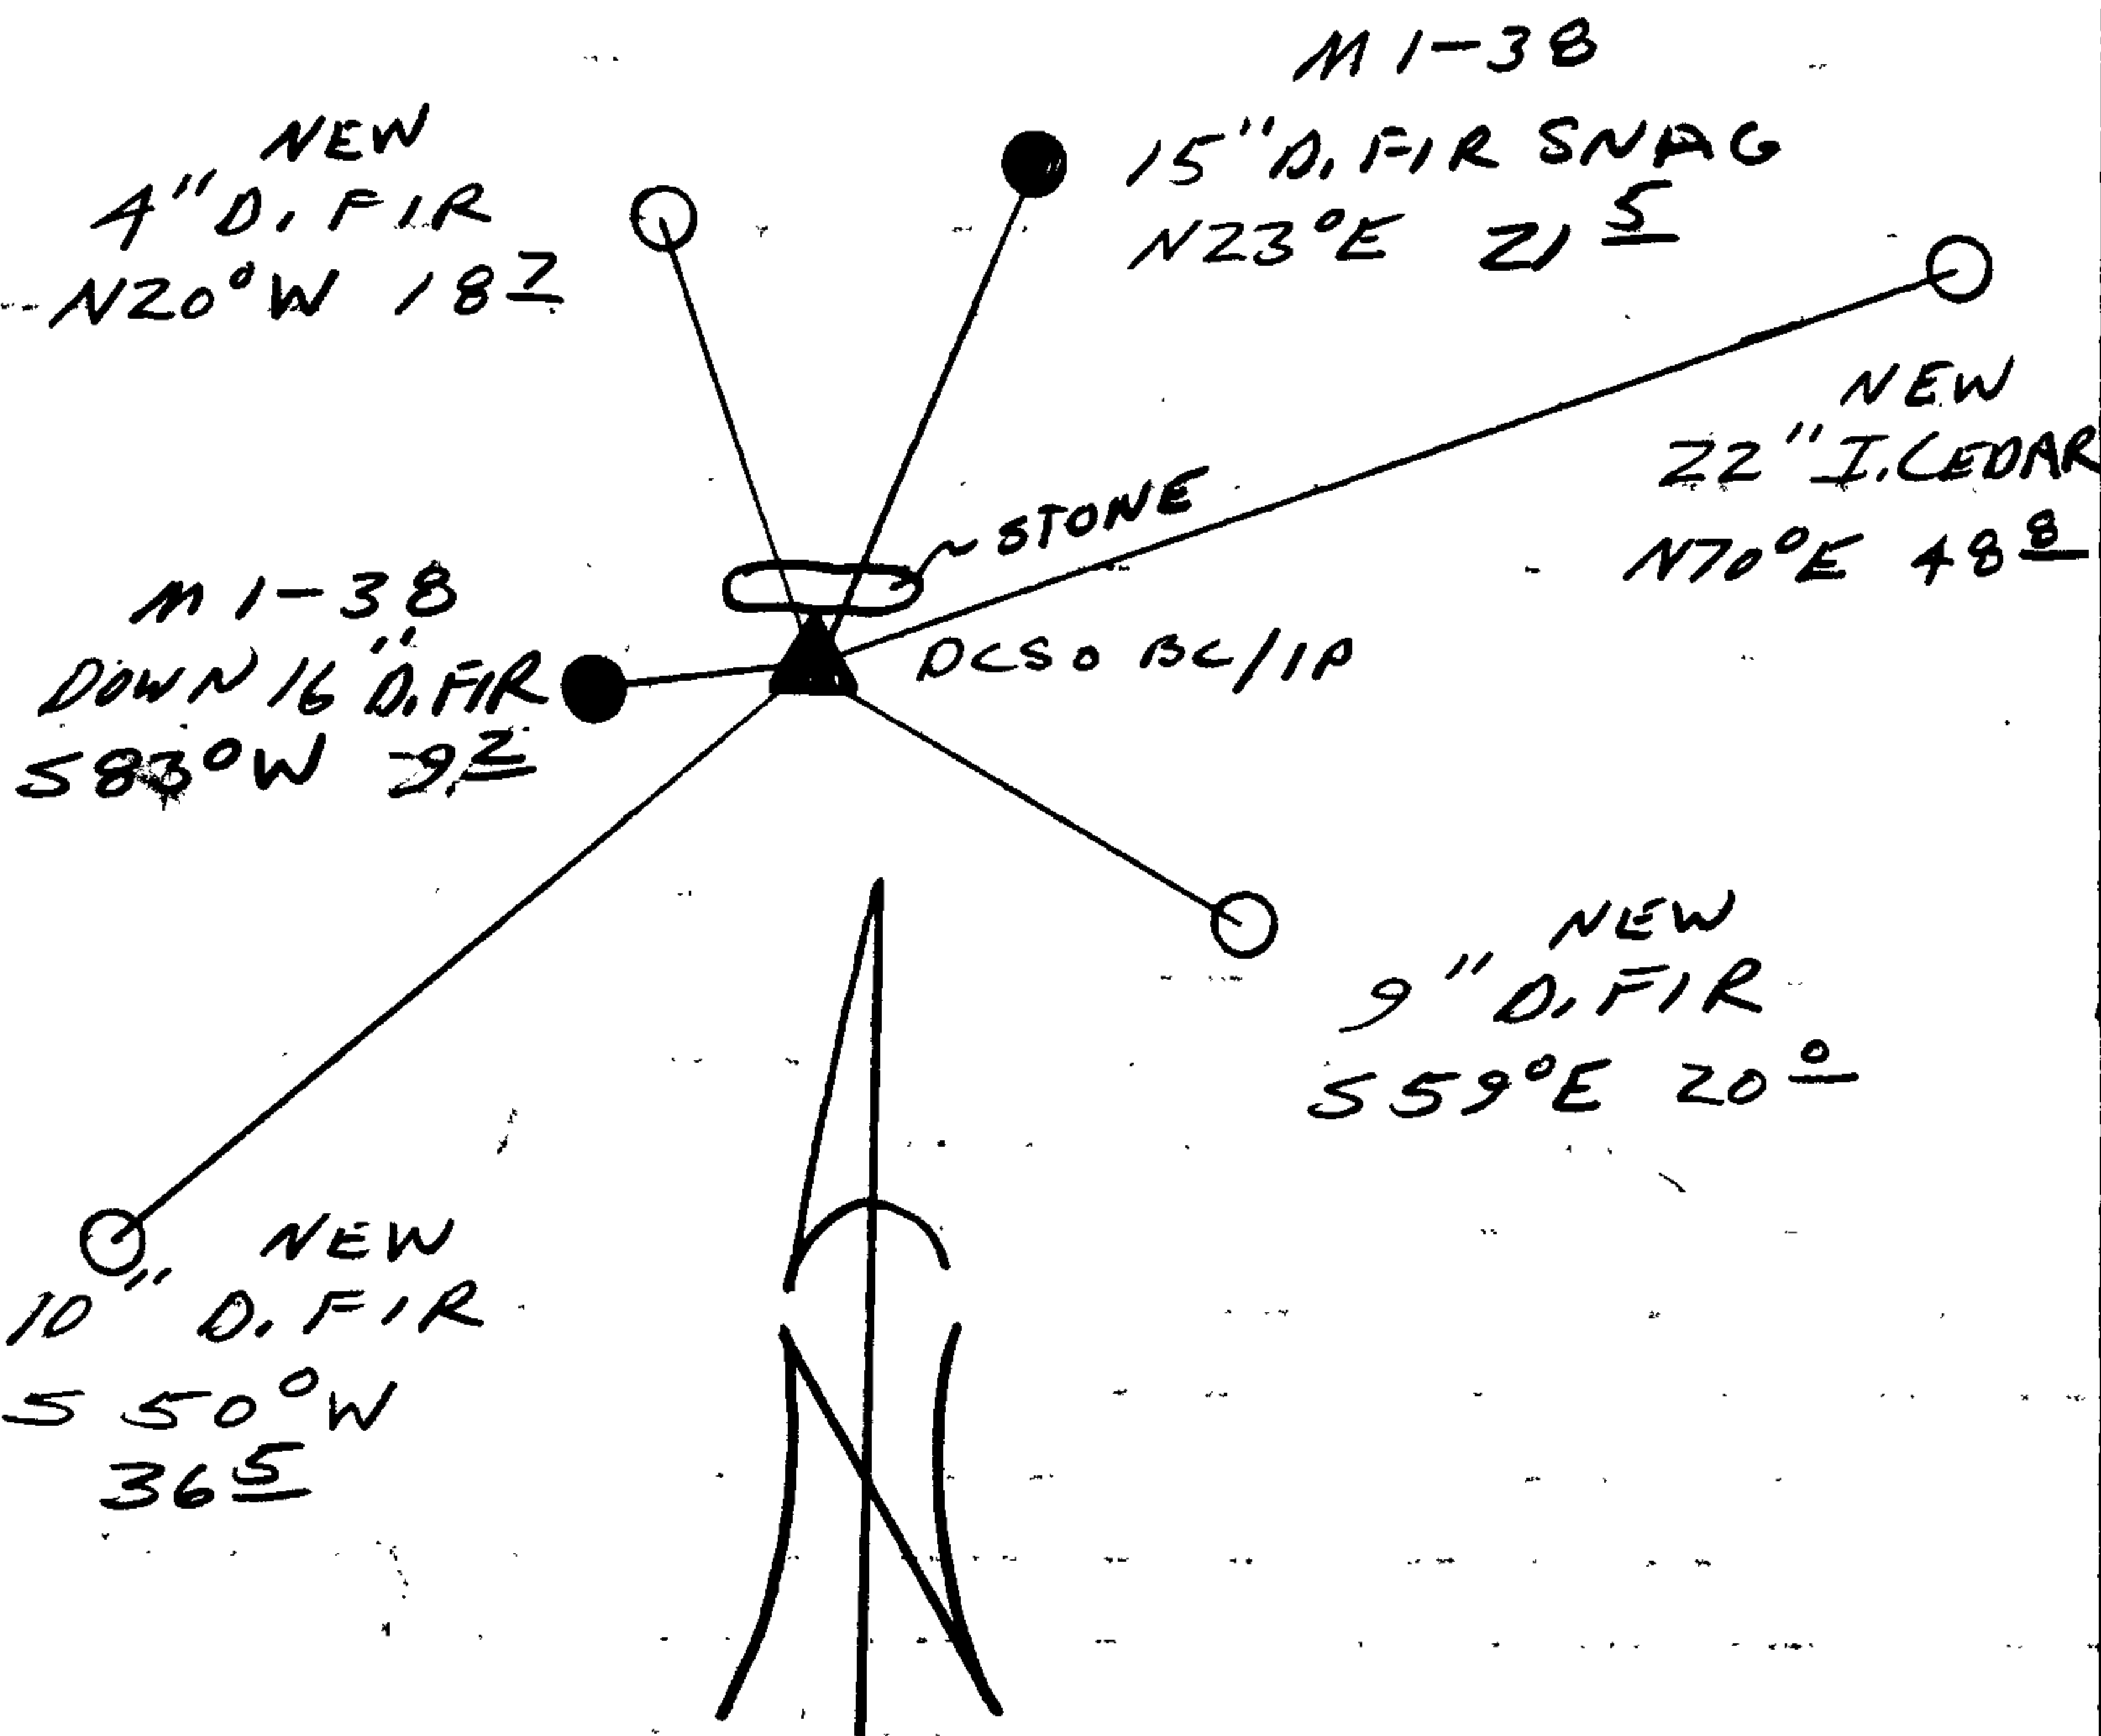 M 1-38
15" D. FIR SNAG
N23°E 21 5
NEW
4" D. FIR
N20°W 18 7
NEW
22" I. CEDAR
N70°E 48 8
STONE
DCSO BC/IP
M 1-38
DOWN 16" D. FIR
S83°W 9 2
NEW
9" D. FIR
S59°E 20 0
NEW
10" D. FIR
S 50°W
36 5
N